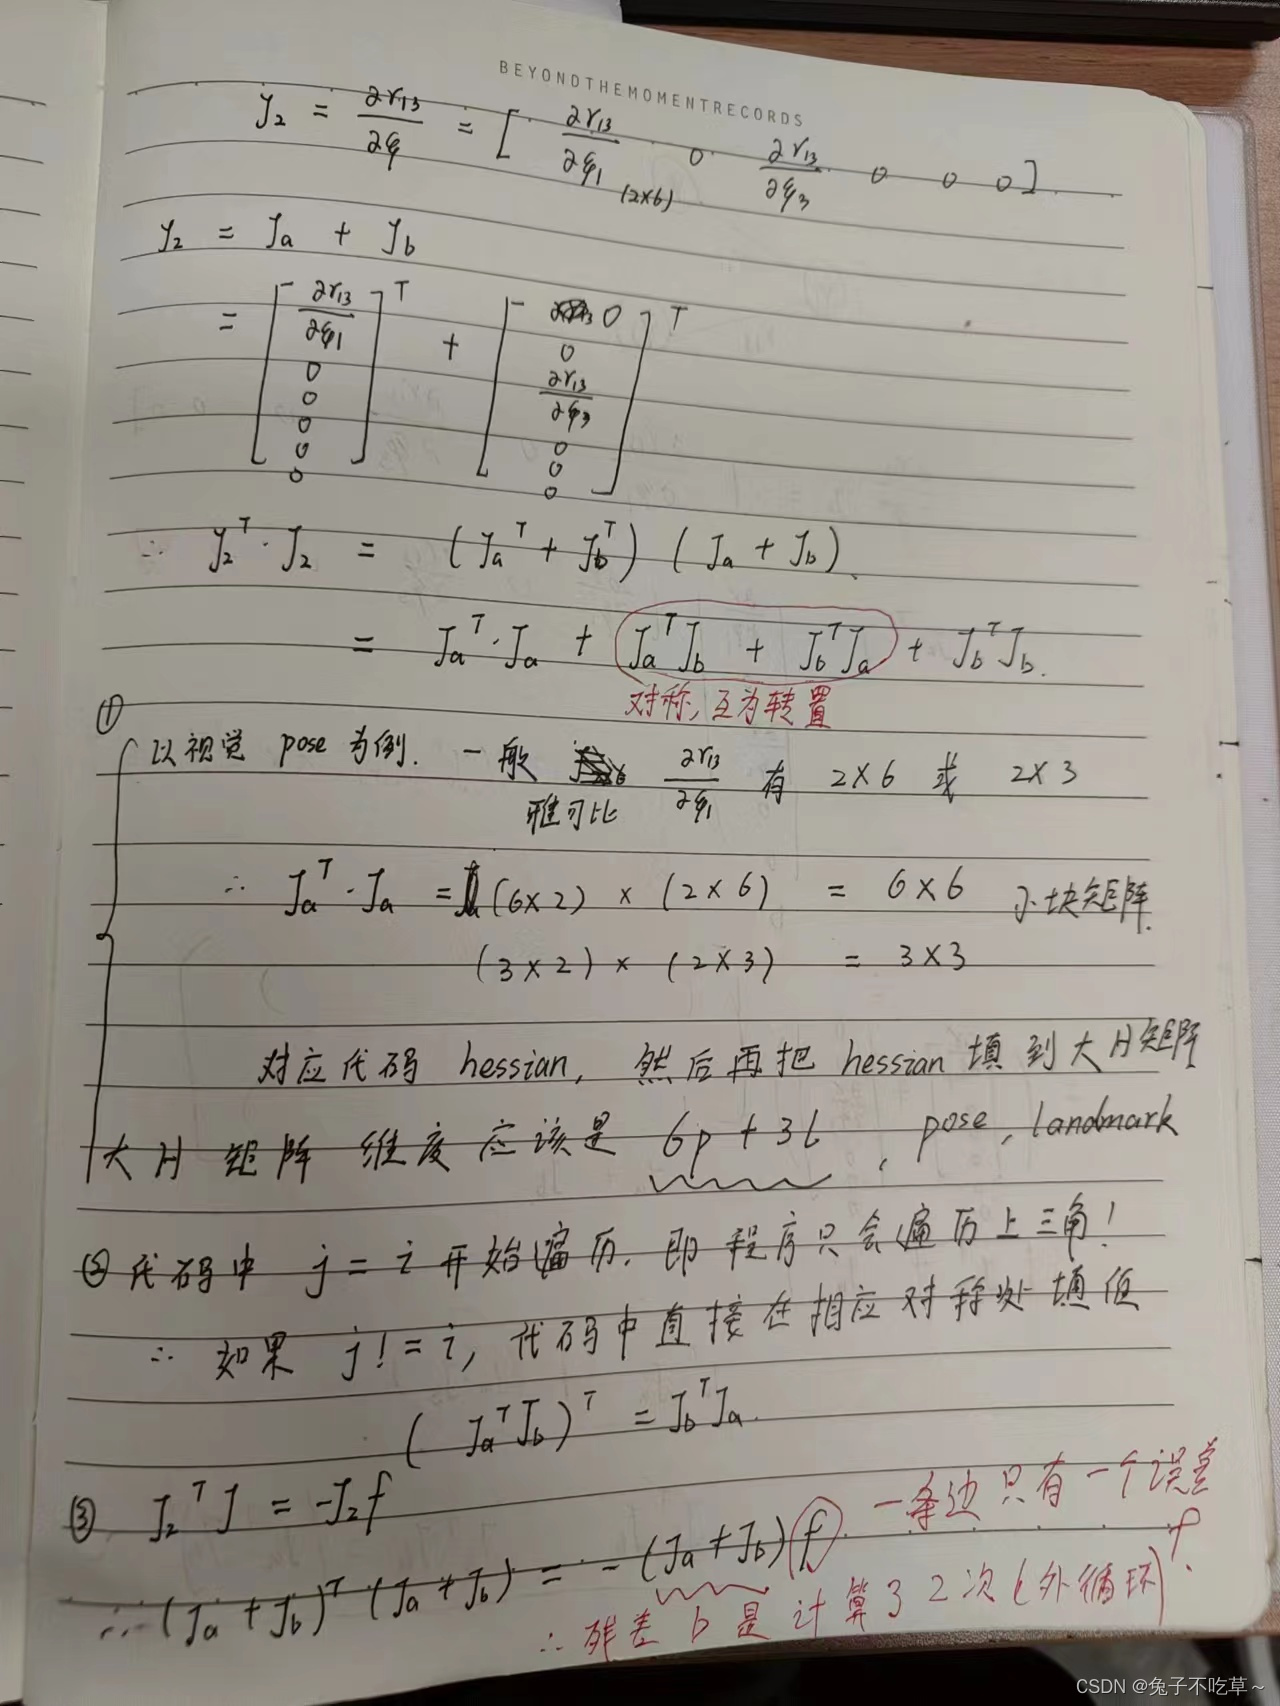 BEYONDTHEMOMENTRECORDS
J₂ = ∂r₁₃/∂ξ = [ ∂r₁₃/∂ξ₁ (2×6) 0 ∂r₁₃/∂ξ₃ 0 0 0 ]
J₂ = Ja + Jb
= [ ∂r₁₃/∂ξ₁ 0 0 0 0 0 ]ᵀ + [ 0 0 ∂r₁₃/∂ξ₃ 0 0 0 ]ᵀ
∴ J₂ᵀ·J₂ = (Jaᵀ + Jbᵀ) (Ja + Jb)
= Jaᵀ·Ja + JaᵀJb + JbᵀJa + JbᵀJb.
对称,互为转置
① 以视觉 pose 为例. 一般 雅可比 ∂r₁₃/∂ξ₁ 有 2×6 或 2×3
∴ Jaᵀ·Ja = (6×2) × (2×6) = 6×6 小块矩阵.
(3×2) × (2×3) = 3×3
对应代码 hessian, 然后再把 hessian 填到大H矩阵
大H 矩阵 维度应该是 6p + 3l , pose, landmark
② 代码中 j = i 开始遍历. 即程序只会遍历上三角!
∴ 如果 j != i, 代码中直接在相应对称处填值
(JaᵀJb)ᵀ = JbᵀJa.
③ J₂ᵀJ = -J₂f
一条边只有一个误差 f.
∴ (Ja + Jb)ᵀ (Ja + Jb) = - (Ja + Jb) f
∴ 残差 b 是计算了2次(外循环)
CSDN @兔子不吃草~